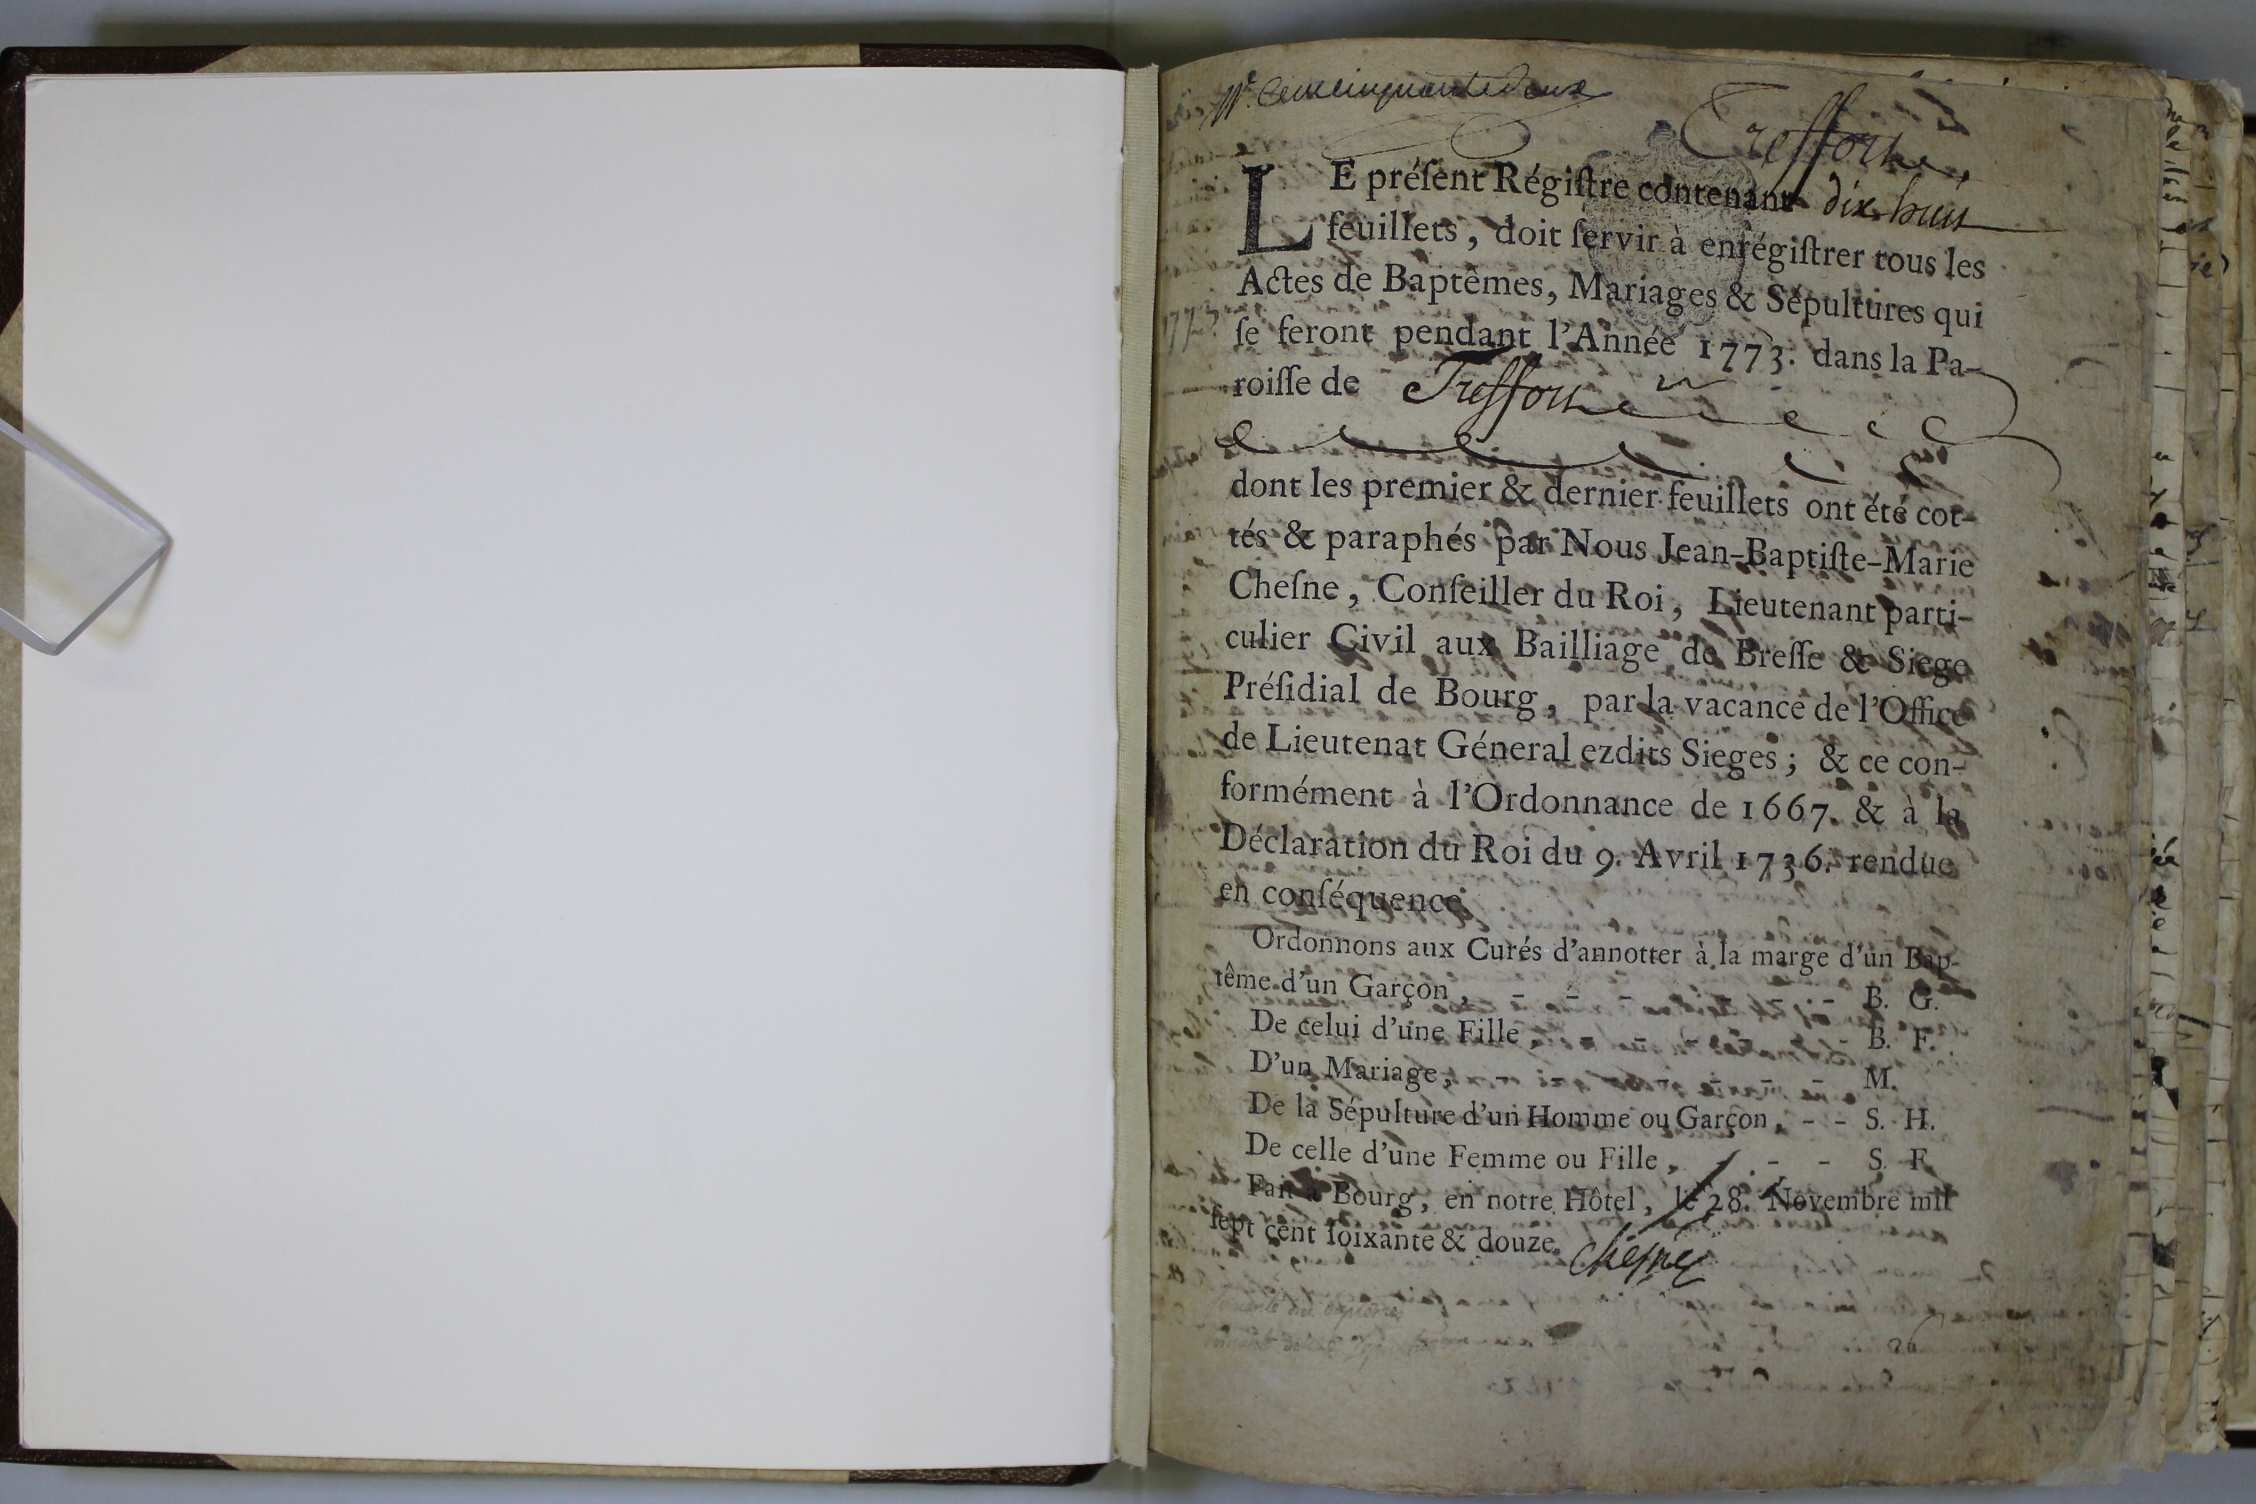 N.° Cent cinquante deux
Treffort
LE préſent Régiſtre contenant dix huit
feuillets, doit ſervir à enrégiſtrer tous les
Actes de Baptêmes, Mariages & Sépultures qui
ſe feront pendant l'Année 1773. dans la Pa-
roiſſe de Treffort
dont les premier & dernier feuillets ont été cot-
tés & paraphés par Nous Jean-Baptiſte-Marie
Cheſne, Conſeiller du Roi, Lieutenant parti-
culier Civil aux Bailliage de Breſſe & Siege
Préſidial de Bourg, par la vacance de l'Office
de Lieutenat Géneral ezdits Sieges; & ce con-
formément à l'Ordonnance de 1667. & à la
Déclaration du Roi du 9. Avril 1736. rendue
en conſéquence.
Ordonnons aux Curés d'annotter à la marge d'un Bap-
tême d'un Garçon, - - - - - - - B. G.
De celui d'une Fille, - - - - - - B. F.
D'un Mariage, - - - - - - M.
De la Sépulture d'un Homme ou Garçon, - - S. H.
De celle d'une Femme ou Fille, - - - S. F.
Fait à Bourg, en notre Hôtel, le 28. Novembre mil
ſept cent ſoixante & douze. Cheſne